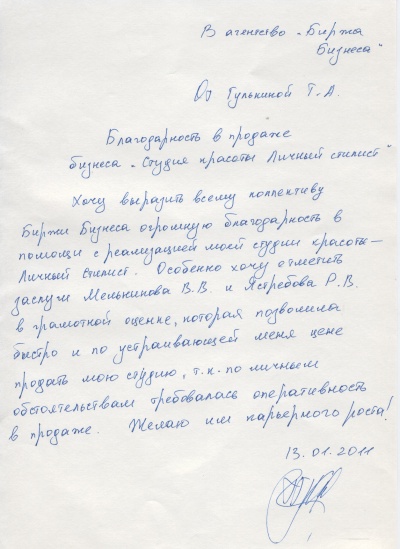 В агенство „Биржа
Бизнеса"
От Гулькиной Т.А.
Благодарность в продаже
бизнеса „Студия красоты Личный стилист"
Хочу выразить всему коллективу
Биржи Бизнеса огромную благодарность в
помощи с реализацией моей студии красоты –
Личный Стилист. Особенно хочу отметить
заслуги Мельникова В.В. и Ястребова Р.В.
в грамотной оценке, которая позволила
быстро и по устраивающей меня цене
продать мою студию, т.к. по личным
обстоятельствам требовалась оперативность
в продаже. Желаю им карьерного роста!
13.01.2011